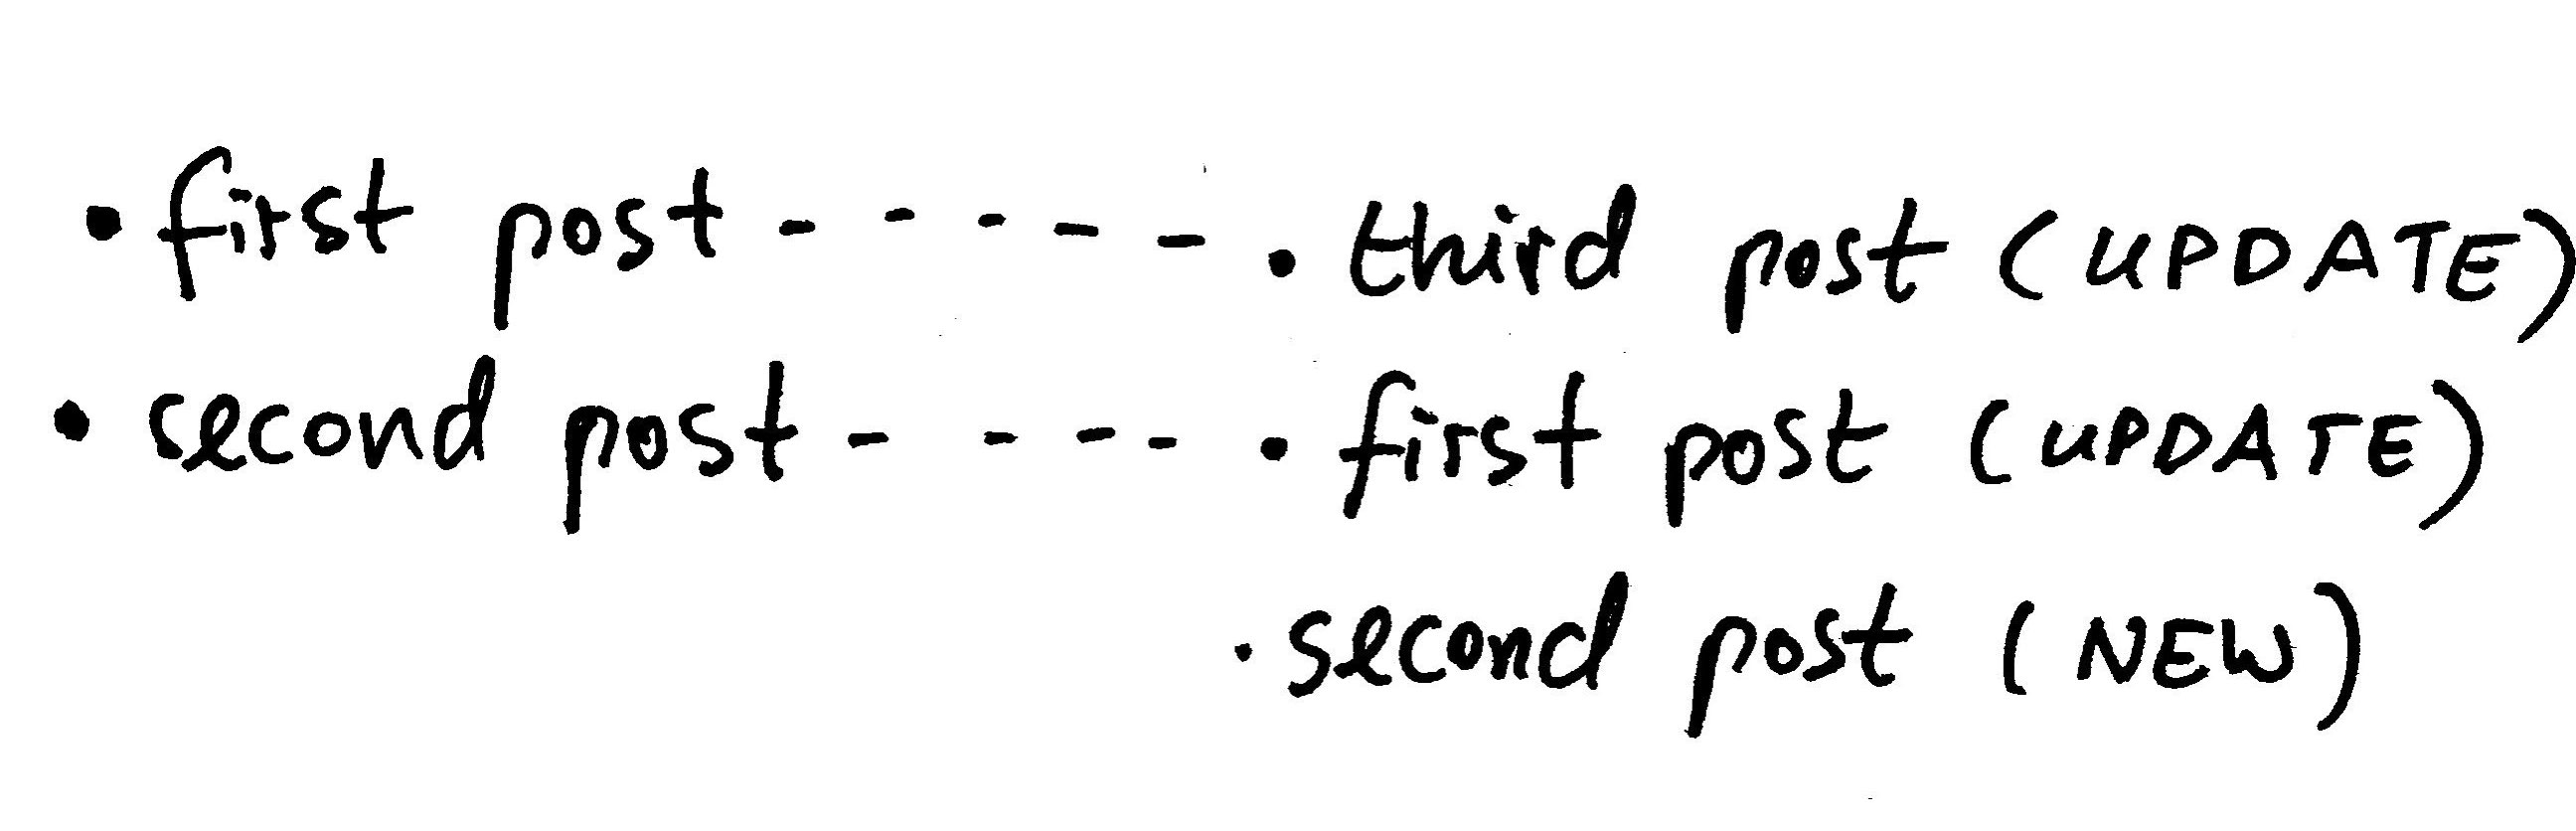 • first post - - - - - • third post (UPDATE)
• second post - - - - • first post (UPDATE)
• second post (NEW)